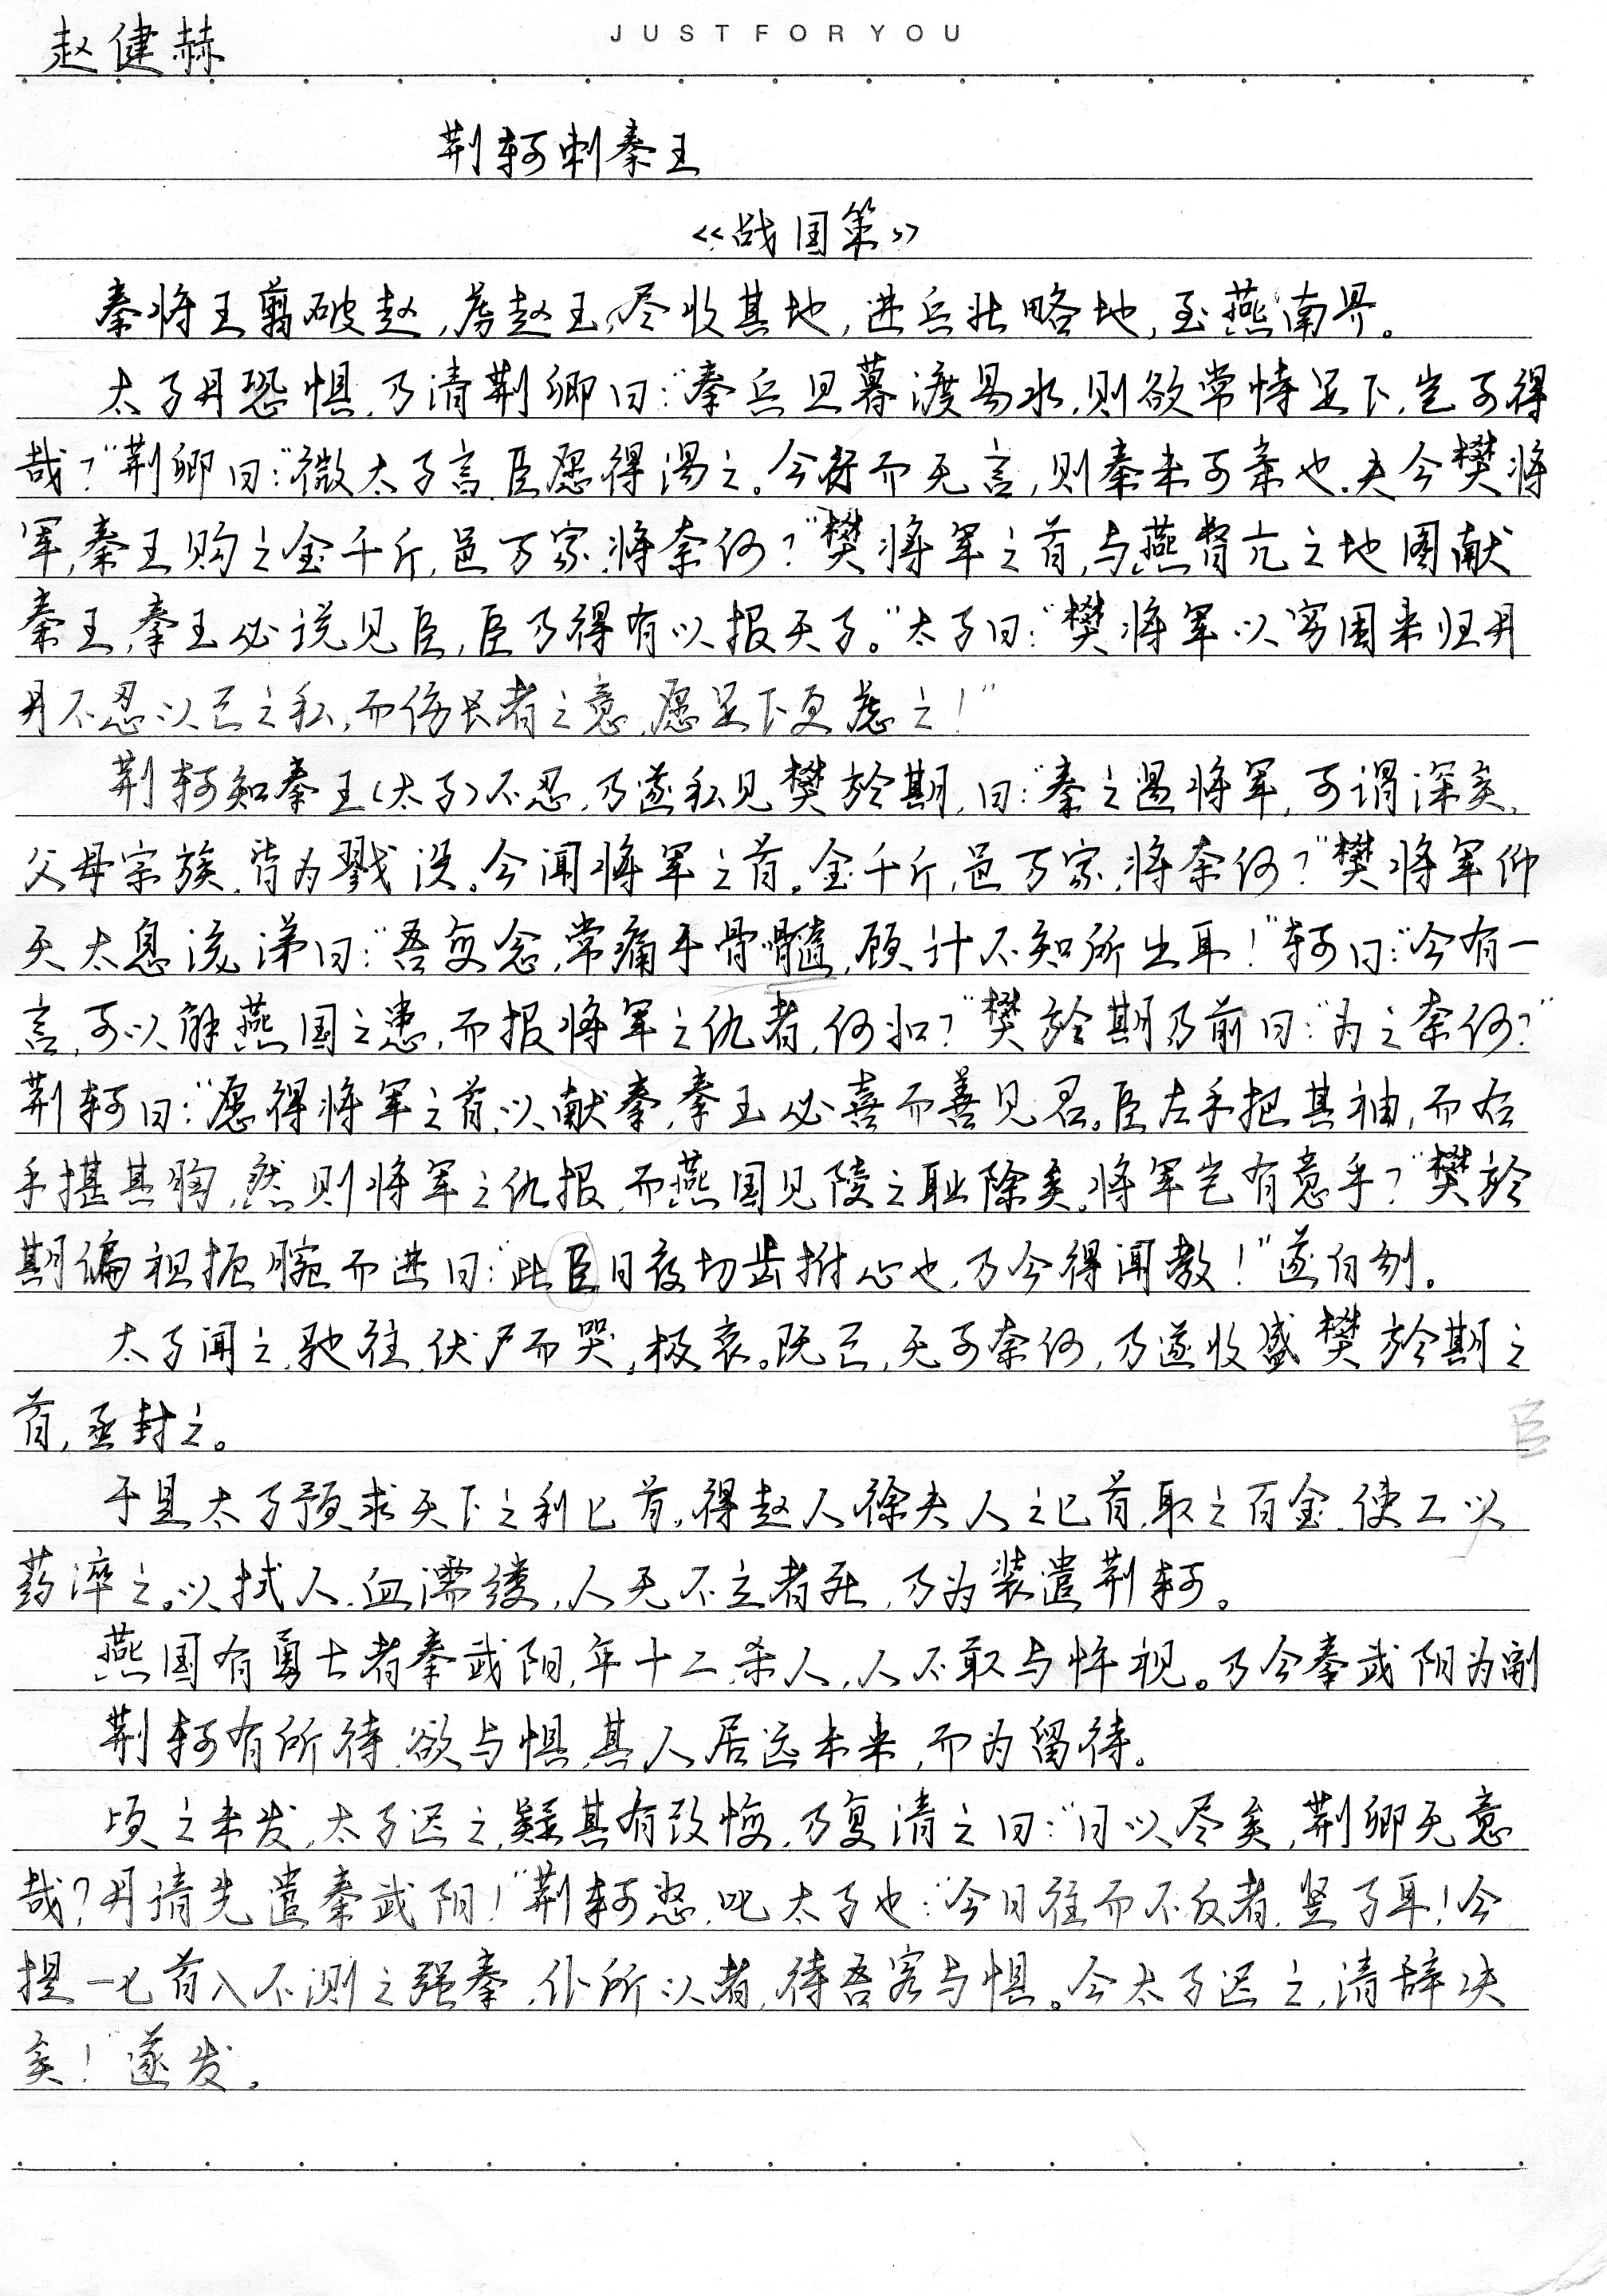 JUST FOR YOU
赵健赫
荆轲刺秦王
《战国策》
秦将王翦破赵,虏赵王,尽收其地,进兵北略地,至燕南界。
太子丹恐惧,乃请荆卿曰:“秦兵旦暮渡易水,则欲常恃足下,岂可得
哉?”荆卿曰:“微太子言,臣愿得谒之。今行而无言,则秦未可亲也.夫今樊将
军,秦王购之金千斤,邑万家,将奈何?”樊将军之首,与燕督亢之地图献
秦王,秦王必说见臣,臣乃得有以报天子。”太子曰:“樊将军以穷困来归丹
丹不忍以己之私,而伤长者之意,愿足下更虑之!”
荆轲知秦王(太子)不忍,乃遂私见樊於期,曰:“秦之遇将军,可谓深矣,
父母宗族,皆为戮没。今闻将军之首。金千斤,邑万家,将奈何?”樊将军仰
天太息流涕曰:“吾每念,常痛于骨髓,顾计不知所出耳!”轲曰:“今有一
言,可以解燕国之患,而报将军之仇者,何如?”樊於期乃前曰:“为之奈何?”
荆轲曰:“愿得将军之首以献秦,秦王必喜而善见君。臣左手把其袖,而右
手揕其胸,然则将军之仇报,而燕国见陵之耻除矣。将军岂有意乎?”樊於
期偏袒扼腕而进曰:“此臣日夜切齿拊心也,乃今得闻教!”遂自刎。
太子闻之,驰往,伏尸而哭,极哀。既已,无可奈何,乃遂收盛樊於期之
首,函封之。
臣
于是太子预求天下之利匕首,得赵人徐夫人之匕首,取之百金,使工以
药淬之。以拭人,血濡缕,人无不立者死,乃为装遣荆轲。
燕国有勇士者秦武阳,年十二,杀人,人不敢与忤视。乃令秦武阳为副
荆轲有所待,欲与惧,其人居远未来,而为留待。
顷之未发,太子迟之,疑其有改悔,乃复请之曰:“日以尽矣,荆卿无意
哉?丹请先遣秦武阳!”荆轲怒,叱太子也:“今日往而不反者,竖子耳!今
提一匕首入不测之强秦,仆所以者,待吾客与惧。今太子迟之,请辞决
矣!”遂发。